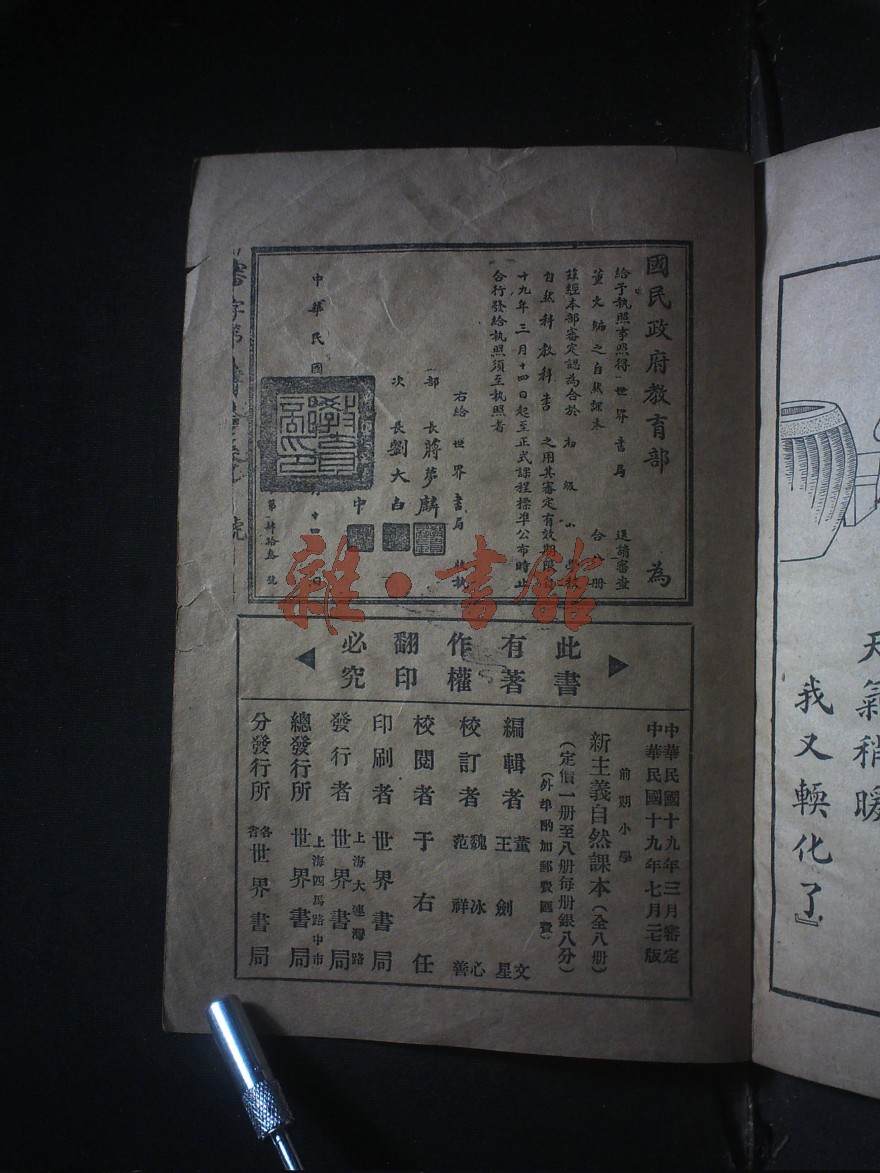 國民政府教育部 為
給予執照事照得 世界書局 送請審查
董文編之自然課本 合八册
茲經本部審定認為合於 初級小學校
自然科教科書 之用其審定有效期間自
十九年三月十四日起至正式課程標準公布時止
合行發給執照須至執照者
右給世界書局 收執
部長蔣夢麟
次長劉大白
中
中華民國 月十四日
教育部印
第肆拾叁號
審字第 號
此書
有著
作權
翻印
必究
中華民國十九年三月審定
中華民國十九年七月三七版
前期小學
新主義自然課本(全八册)
(定價一册至八册每册銀八分)
(外埠酌加郵費匯費)
編輯者 董文 王劍星
校訂者 魏冰心 范祥善
校閱者 于右任
印刷者 世界書局
上海大連灣路
發行者 世界書局
上海四馬路中市
總發行所 世界書局
分發行所 各省世界書局
天氣稍暖
我又輭化了』
雜·書館